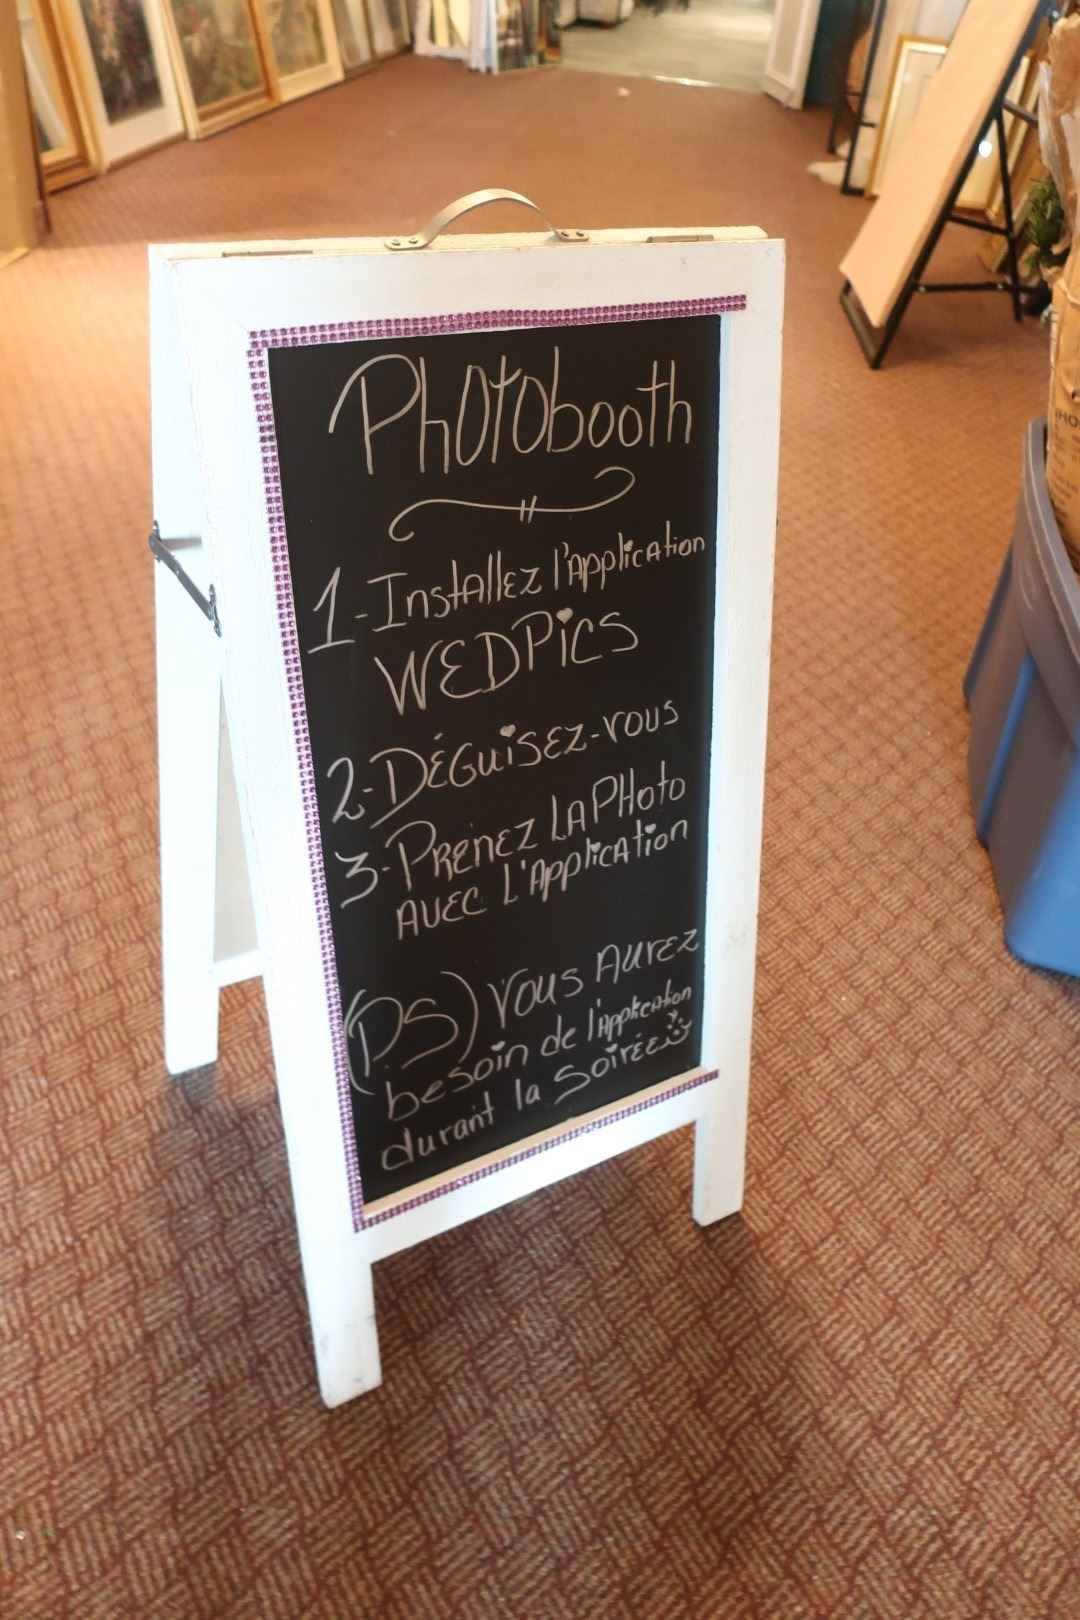 PhOtObooth
1-Installez l'Application
WEDPiCS
2-DÉGuiSEZ-vous
3-PRENEZ LA PHoto
AVEC L'Application
(P.S) Vous AUrEZ
besoin de l'Application
durant la soirée